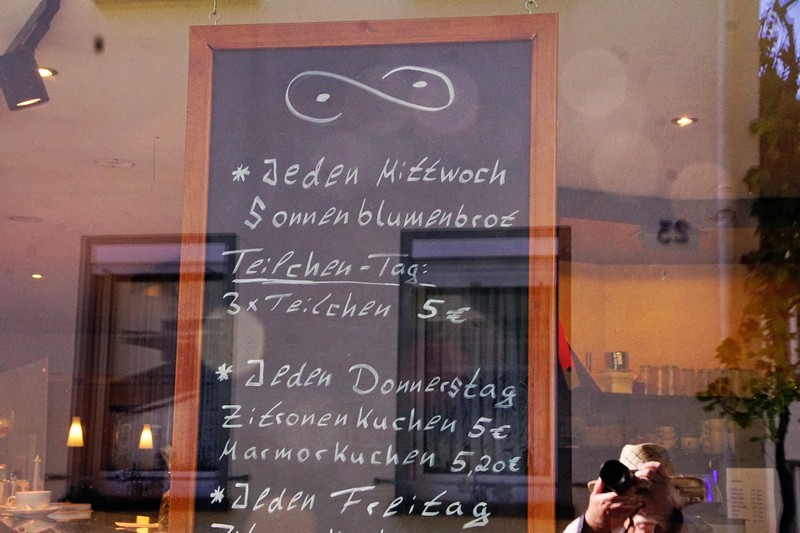 * Jeden Mittwoch
Sonnenblumenbrot
Teilchen-Tag:
3x Teilchen 5€
* Jeden Donnerstag
Zitronenkuchen 5€
Marmorkuchen 5,20€
* Jeden Freitag
23